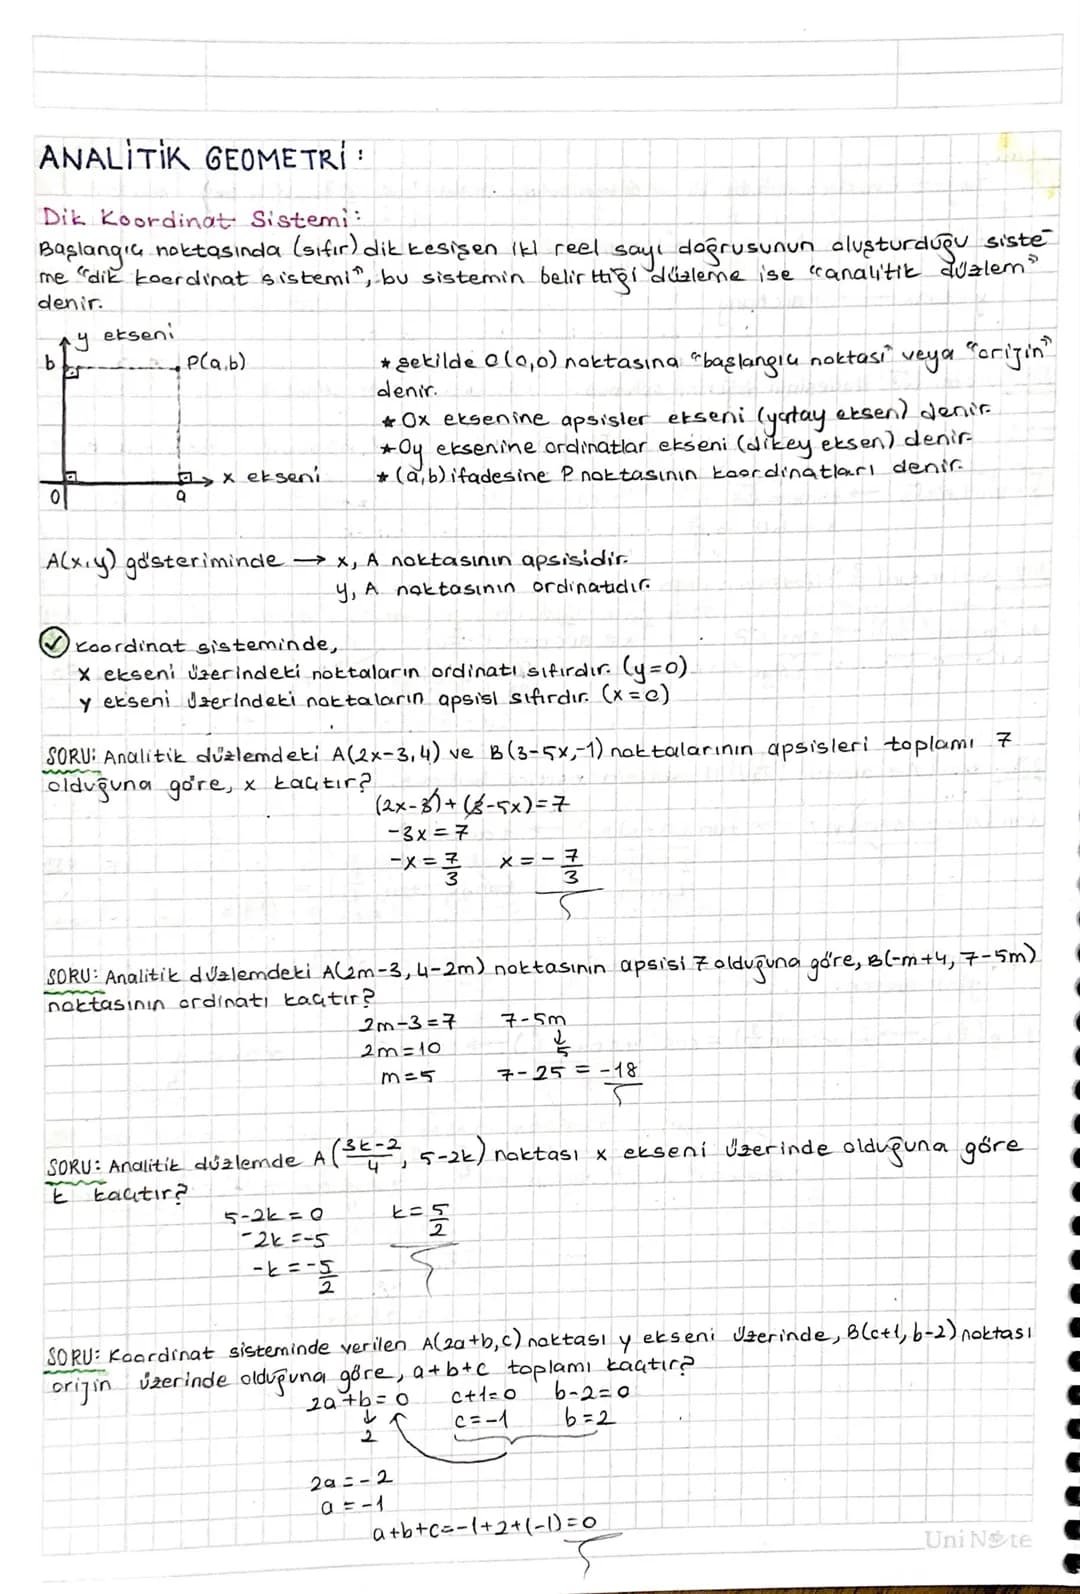 ANALİTİK GEOMETRİ:
Dik Koordinat Sistemi:
Başlangıç noktasında (sıfır) dik kesişen iki reel sayı doğrusunun oluşturduğu siste-
me "dik koordinat sistemi", bu sistemin belirttiği düzleme ise "analitik düzlem"
denir.
y ekseni
b
P(a,b)
x ekseni
0
a
* şekilde O(0,0) noktasına "başlangıç noktası" veya "orijin"
denir.
* Ox eksenine apsisler ekseni (yatay eksen) denir.
* Oy eksenine ordinatlar ekseni (dikey eksen) denir.
* (a,b) ifadesine P noktasının koordinatları denir.
A(x,y) gösteriminde → x, A noktasının apsisidir.
y, A noktasının ordinatıdır.
✓ koordinat sisteminde,
x ekseni üzerindeki noktaların ordinatı sıfırdır. (y=0)
y ekseni üzerindeki noktaların apsisi sıfırdır. (x=0)
SORU: Analitik düzlemdeki A(2x-3,4) ve B(3-5x,-1) noktalarının apsisleri toplamı 7
olduğuna göre, x kaçtır?
(2x-3)+(3-5x)=7
-3x=7
-x=7/3 x=-7/3
SORU: Analitik düzlemdeki A(2m-3,4-2m) noktasının apsisi 7 olduğuna göre, B(-m+4,7-5m)
noktasının ordinatı kaçtır?
2m-3=7 7-5m
2m=10 ↓ 5
m=5 7-25=-18
SORU: Analitik düzlemde A(3k-2/4, 5-2k) noktası x ekseni üzerinde olduğuna göre
k kaçtır?
5-2k=0 k=5/2
-2k=-5
-k=-5/2
SORU: Koordinat sisteminde verilen A(2a+b,c) noktası y ekseni üzerinde, B(c+1,b-2) noktası
orijin üzerinde olduğuna göre, a+b+c toplamı kaçtır?
2a+b=0 c+1=0 b-2=0
↓ 2 c=-1 b=2
2a=-2
a=-1
a+b+c=-1+2+(-1)=0
UniNote